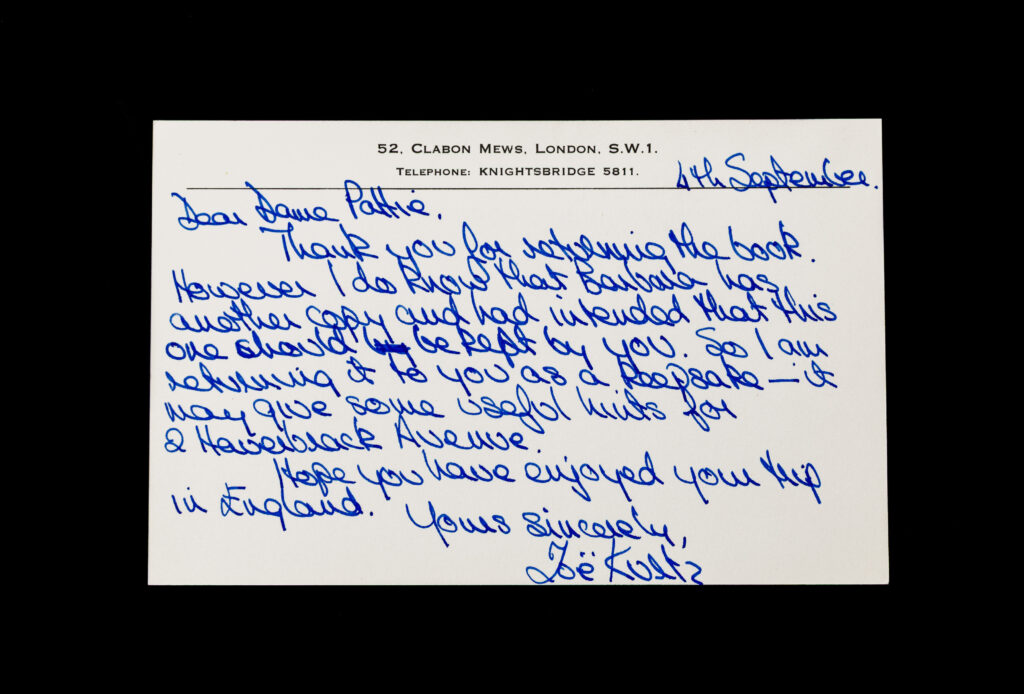 52, CLABON MEWS, LONDON, S.W.1.
TELEPHONE: KNIGHTSBRIDGE 5811.
4th September.
Dear Dame Pattie,
Thank you for returning the book.
However I do know that Barbara has
another copy and had intended that this
one should be kept by you. So I am
returning it to you as a keepsake – it
may give some useful hints for
2 Haverbrack Avenue.
Hope you have enjoyed your trip
in England.
Yours sincerely,
Zoë